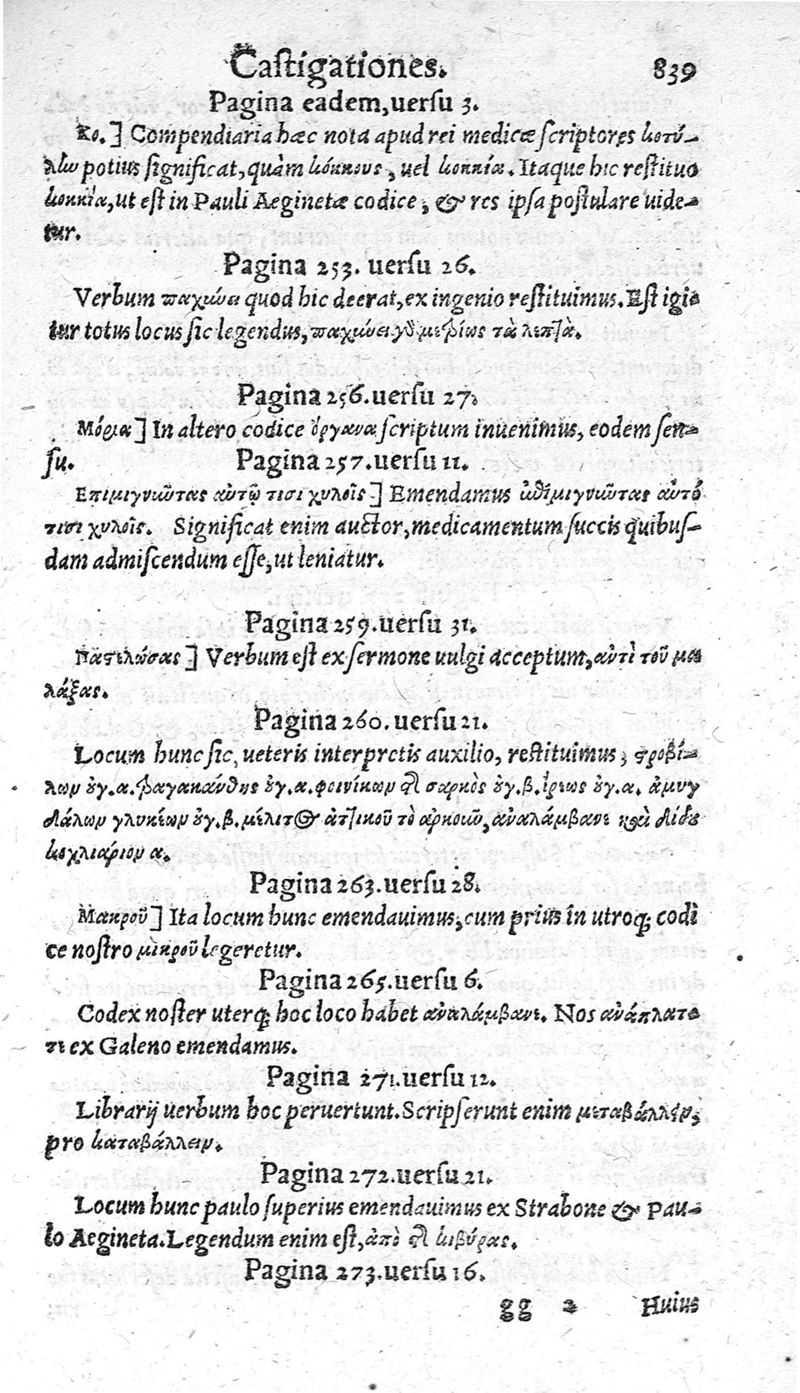 Castigationes. 839
Pagina eadem, uersu 3.
Κο.] Compendiaria hæc nota apud rei medicæ scriptores κοτύ-
λlω potius significat, quàm κόκκους, uel κοκκία. Itaque hic restituo
κοκκία, ut est in Pauli Aeginetæ codice, & res ipsa postulare uide-
tur.
Pagina 253. uersu 26.
Verbum παχύνει quod hic deerat, ex ingenio restituimus. Est igi
tur totus locus sic legendus, παχύνει γδ μετρίως τὰ λεπτὰ.
Pagina 256. uersu 27.
Μόρια] In altero codice ὄργανα scriptum inuenimus, eodem sen-
su. Pagina 257. uersu 11.
Επιμιγνιῶτας αὐτῷ τισι χυλοῖς] Emendamus ἐπιμιγνιῶτας αὐτό
τισι χυλοῖς. Significat enim auctor, medicamentum succis quibus-
dam admiscendum esse, ut leniatur.
Pagina 259. uersu 31.
Πατιλώσας] Verbum est ex sermone uulgi acceptum, αὐτὶ τοῦ μα
λάξας.
Pagina 260. uersu 21.
Locum hunc sic, ueteris interpretis auxilio, restituimus, στροβί-
λων ουγ. α. τραγακάνθης ουγ. α. φοινίκων τ͂ σαρκὸς ουγ. β. ἴρεως ουγ. α. ἀμυγ
δάλων γλυκέων ουγ. β. μέλιτος ἀττικοῦ τὸ ἀρκοιῶ, ἀναλάμβανε καὶ δίδε
κοχλιάριον α.
Pagina 263. uersu 28.
Μακροῦ] Ita locum hunc emendauimus, cum prius in utroq; codi
ce nostro μικροῦ legeretur.
Pagina 265. uersu 6.
Codex noster uterq; hoc loco habet ἀναλάμβανε. Nos ἀνάπλατε
τε ex Galeno emendamus.
Pagina 271. uersu 12.
Librarij uerbum hoc peruertunt. Scripserunt enim μεταβάλλειν,
pro καταβάλλειν.
Pagina 272. uersu 21.
Locum hunc paulo superius emendauimus ex Strabone & Pau-
lo Aegineta. Legendum enim est, ἀπὸ τ͂ κιβύρας.
Pagina 273. uersu 16.
gg 2 Huius